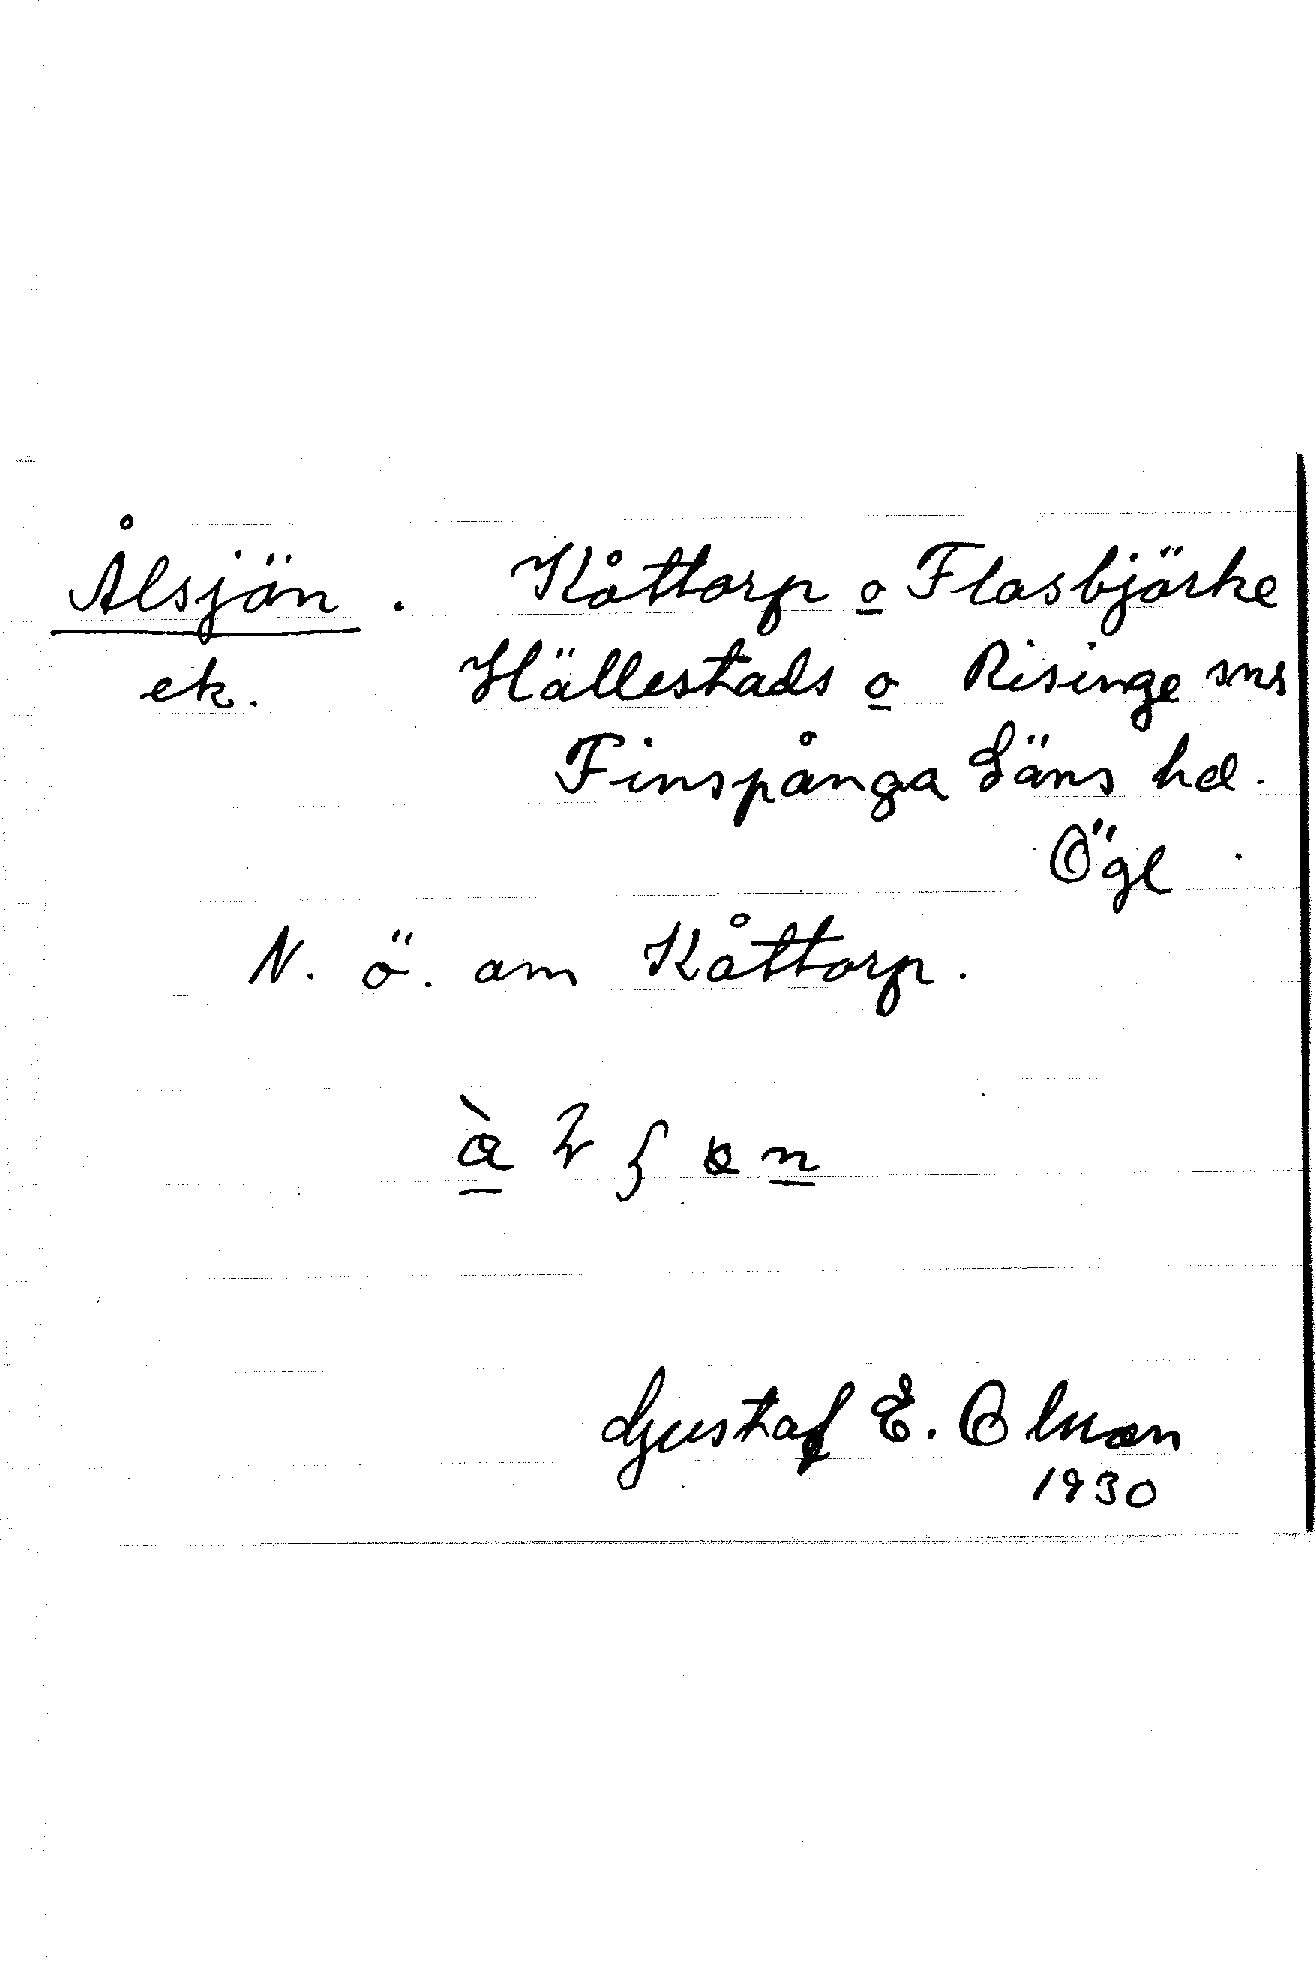 Ålsjön. Kåttorp o Flasbjörke
ek. Hällestads o Risinge snr
Finspånga Läns hd.
Ögl.
N. ö. om Kåttorp.
Gustaf E. Olsson
1930